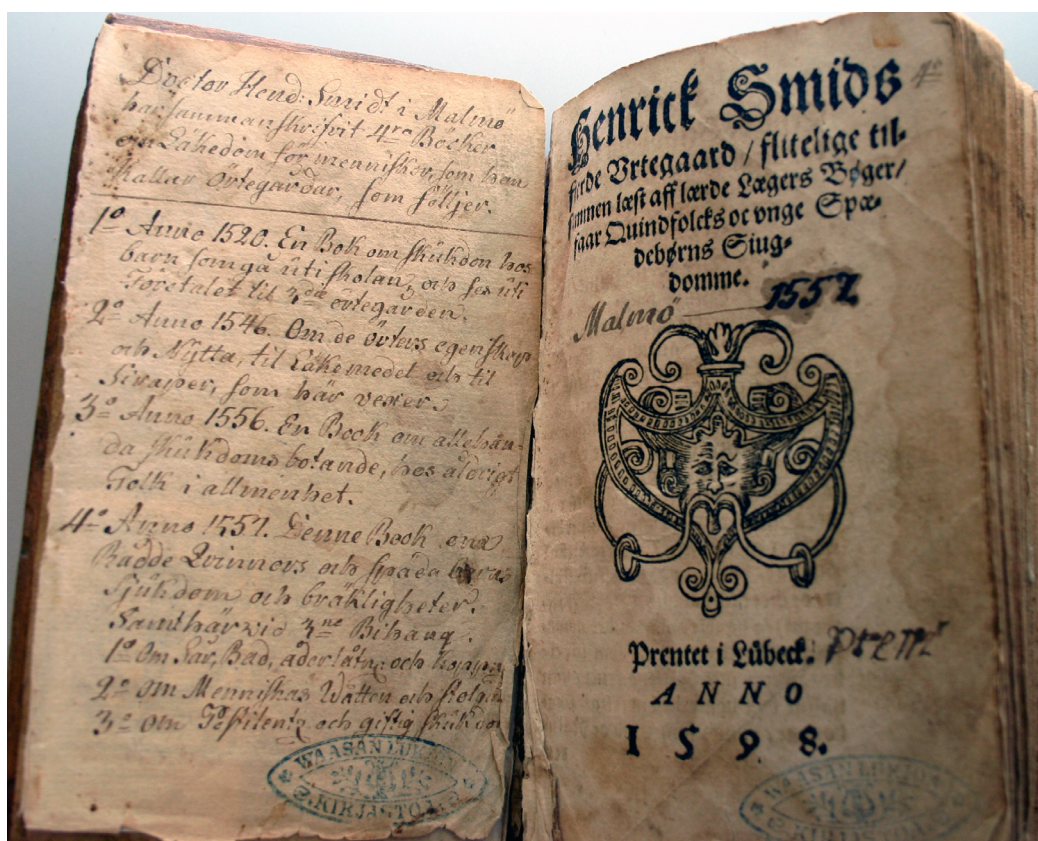 Doctor Hend: Smidt i Malmö
har sammanskrifvit 4ra Böcker
om Läkedom för menniskor, som han
kallar Örtegårdar, som följer.
1º Anno 1520. En Bok om sjukdom hos
barn som gå uti skolan, och ses uti
Företalet til 3die örtegården.
2º Anno 1546. Om de örters egenskap
och Nÿtta, til Läkemedel och til
som här vexer.
3º Anno 1556. En Book om allehan-
da sjukdoms botande, hos
Folk i allmenhet.
4º Anno 1557. Denne Book om
Rädde Qvinnors och späda barns
sjukdom och bräkligheter.
Samt härvid 3ne Bihang.
1º Om Sår, Bad, åderlåtne och koppn
2º Om Menniskas Watten och
3º Om Pestilentz och giftig sjukdo
WAASAN LUKION
KIRJASTO
Henrick Smids
fierde Vrtegaard / flitelige til-
sammen læst aff lærde Lægers Bøger/
faar Quindfolcks oc vnge Spæ-
debørns Siug-
domme.
Malmö 1557
Prentet i Lübeck.
ANNO
1598.
WAASAN LUKION
KIRJASTO